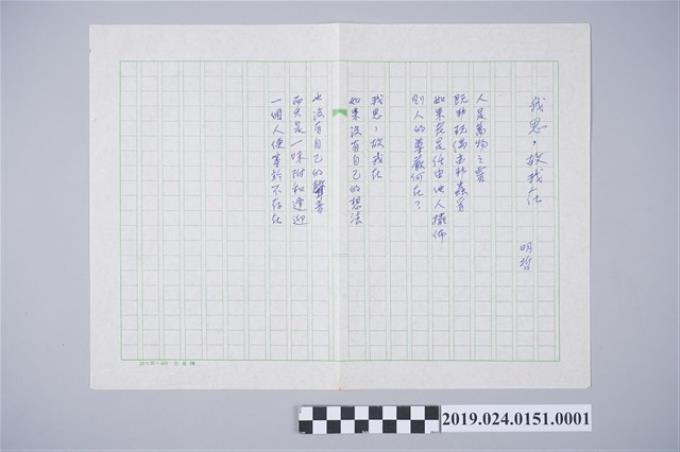 我思,故我在
明哲
人是萬物之靈
既非玩偶亦非蟲豸
如果老是任由他人擺佈
別人的尊嚴何在?
我思,故我在
如果沒有自己的想法
也沒有自己的聲音
而只是一味附和逢迎
一個人便等於不存在
2019.024.0151.0001